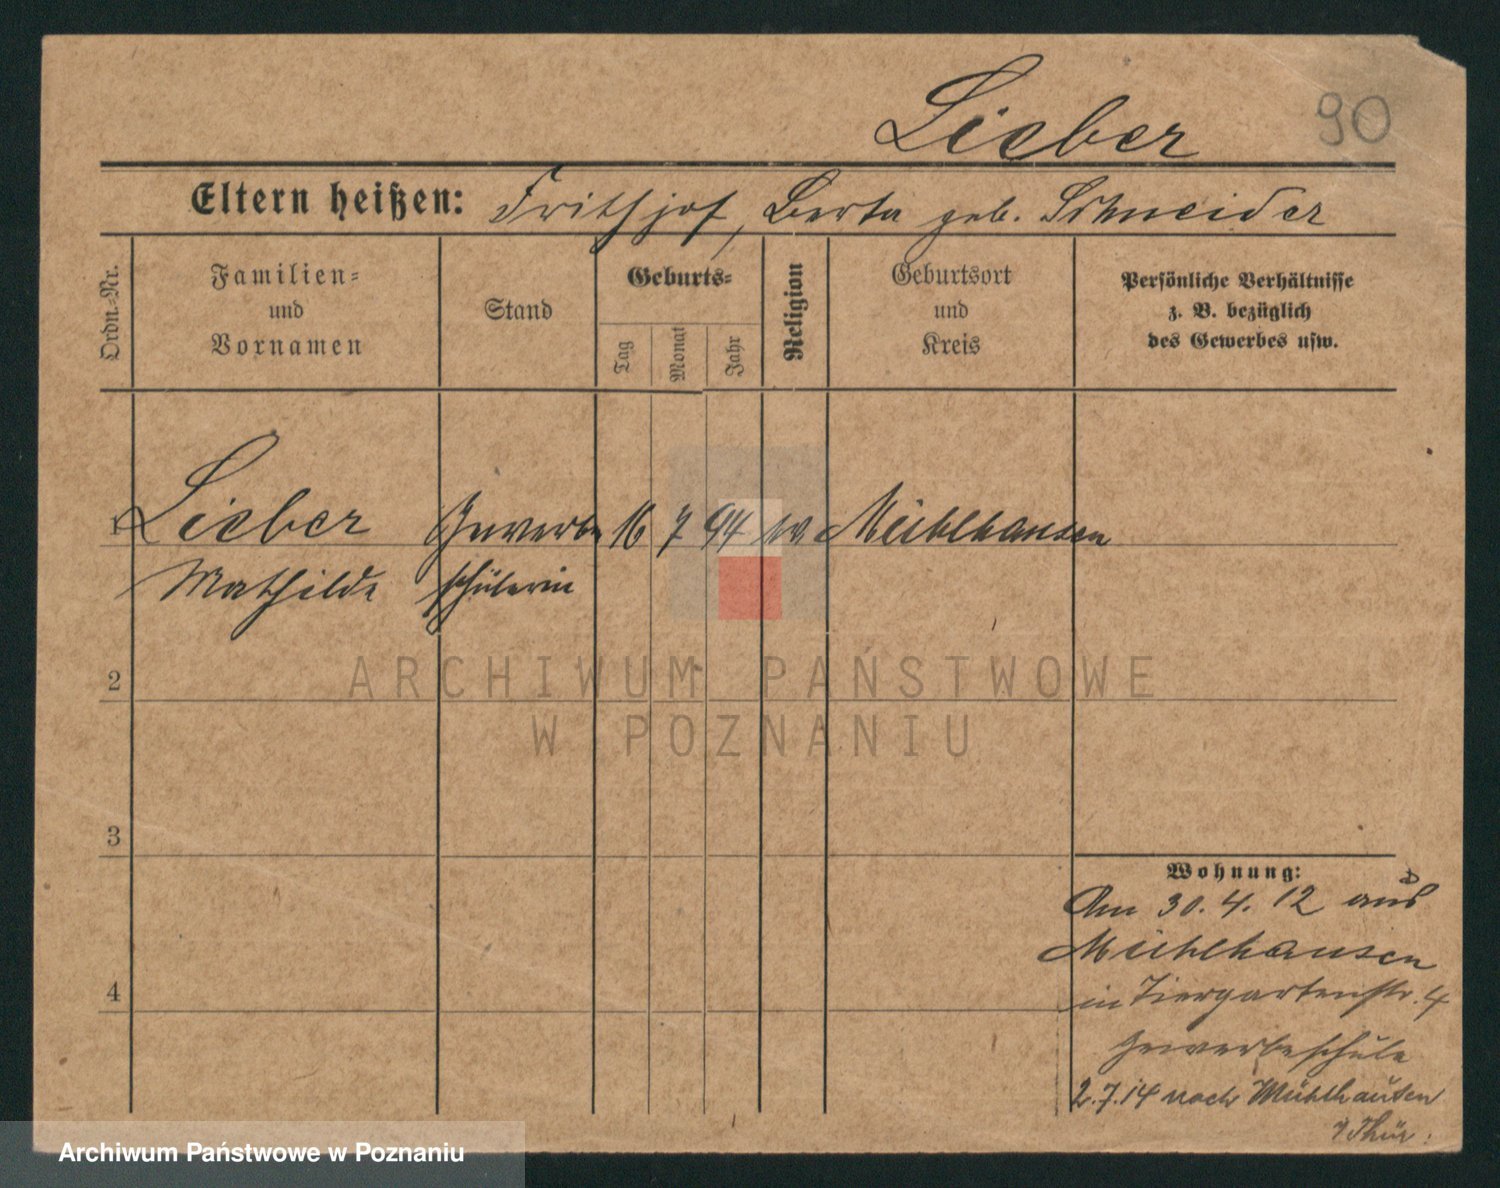 Lieber
90
Eltern heißen: Frithjof, Berta geb. Schneider
Ordn.-Nr.
Familien-
und
Vornamen
Stand
Geburts-
Tag
Monat
Jahr
Religion
Geburtsort
und
Kreis
Persönliche Verhältnisse
z. B. bezüglich
des Gewerbes usw.
1 Lieber Gewerbe 16 7 94 ev Mühlhausen
Mathilde schülerin
2
3
4
ARCHIWUM PAŃSTWOWE
W POZNANIU
Wohnung:
Am 30. 4. 12 aus
Mühlhausen
in Tiergartenstr. 4
Gewerbeschule
2.7.14 nach Mühlhausen
i/Thür.
Archiwum Państwowe w Poznaniu